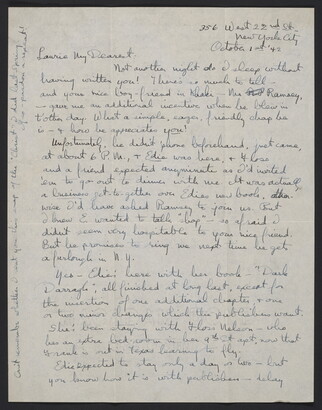 356 West 22nd St.
New York City
October 1st '42
Laurie My Dearest,
Not another night do I sleep without
having written you! There's so much to tell –
and your nice boy-friend in Khaki – Mr Ramsey,
– gave me an additional incentive when he blew in
t'other day. What a simple, eager, friendly chap he
is – & how he appreciates you!
Unfortunately, he didn't phone beforehand, just came,
at about 6 P.M., & Edie was here, & Floss
and a friend expected anyminute as I'd invited
'em to go out to dinner with me. It was actually
a business get-together over Edie's new book, other-
wise I'd have asked Ramsey to join us. But
I knew E wanted to talk "shop" – so afraid I
didn't seem very hospitable to your nice friend.
But he promises to ring me next time he gets
a furlough in N.Y.
Yes – Edie's here with her book – "Dark
Darragh", all finished at long last, except for
the insertion of one additional chapter & one
or two minor changes which the publishers want.
She's been staying with Floss Nelson – who
has an extra bed-room in her 4th St apt, now that
Frank is out in Texas learning to fly.
Edie expected to stay only a day or two – but
you know how it is with publishers – delay
Can't remember whether I sent you